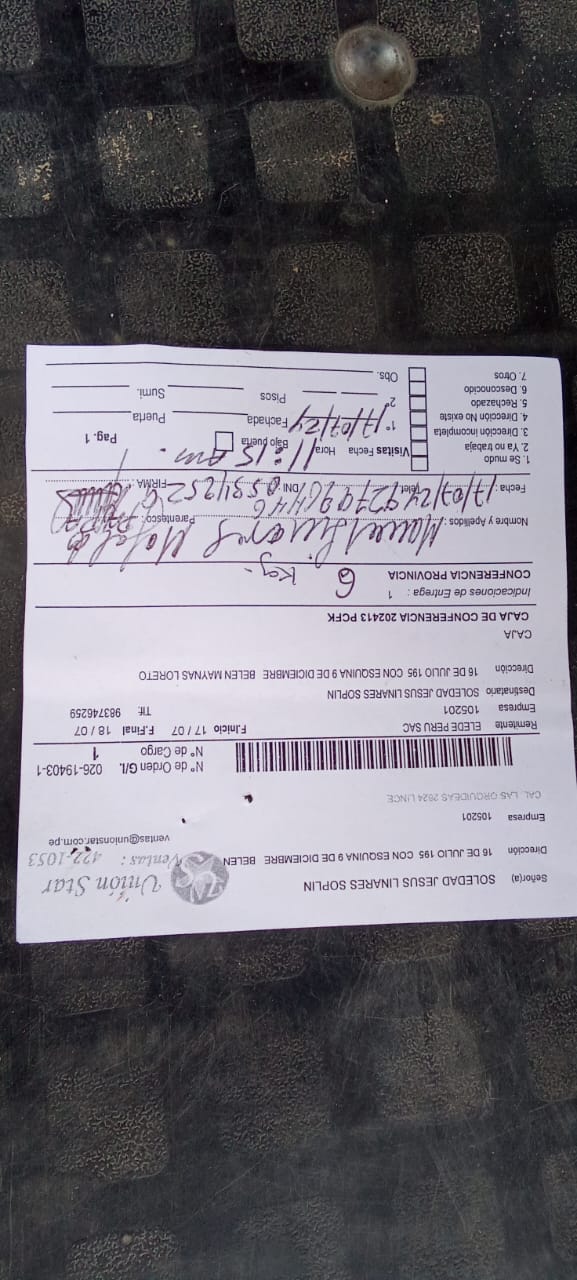 Señor(a) SOLEDAD JESUS LINARES SOPLIN
Unión Star
Dirección 16 DE JULIO 195 CON ESQUINA 9 DE DICIEMBRE BELEN
Ventas : 422-1053
ventas@unionstar.com.pe
Empresa 105201
CAL. LAS ORQUIDEAS 2624 LINCE
N° de Orden G/L. 026-19403-1
N° de Cargo 1
Remitente ELEDE PERU SAC F.Inicio 17 / 07 F.Final 18 / 07
Empresa 105201 Tlf. 983746259
Destinatario SOLEDAD JESUS LINARES SOPLIN
Dirección 16 DE JULIO 195 CON ESQUINA 9 DE DICIEMBRE BELEN MAYNAS LORETO
CAJA
CAJA DE CONFERENCIA 202413 PCFK
Indicaciones de Entrega : 1
CONFERENCIA PROVINCIA 6 Kg.
Nombre y Apellidos : Manuel Linares Parentesco :
Fecha : 17/07/24 Telef. DNI FIRMA :
1. Se mudo
2. Ya no trabaja
3. Dirección incompleta
4. Dirección No existe
5. Rechazado
6. Desconocido
7. Otros
Visitas Fecha Hora 11:15 am. Bajo puerta Pag. 1
1° 17/07/24 Fachada Puerta
2° Pisos Sumi.
Obs.